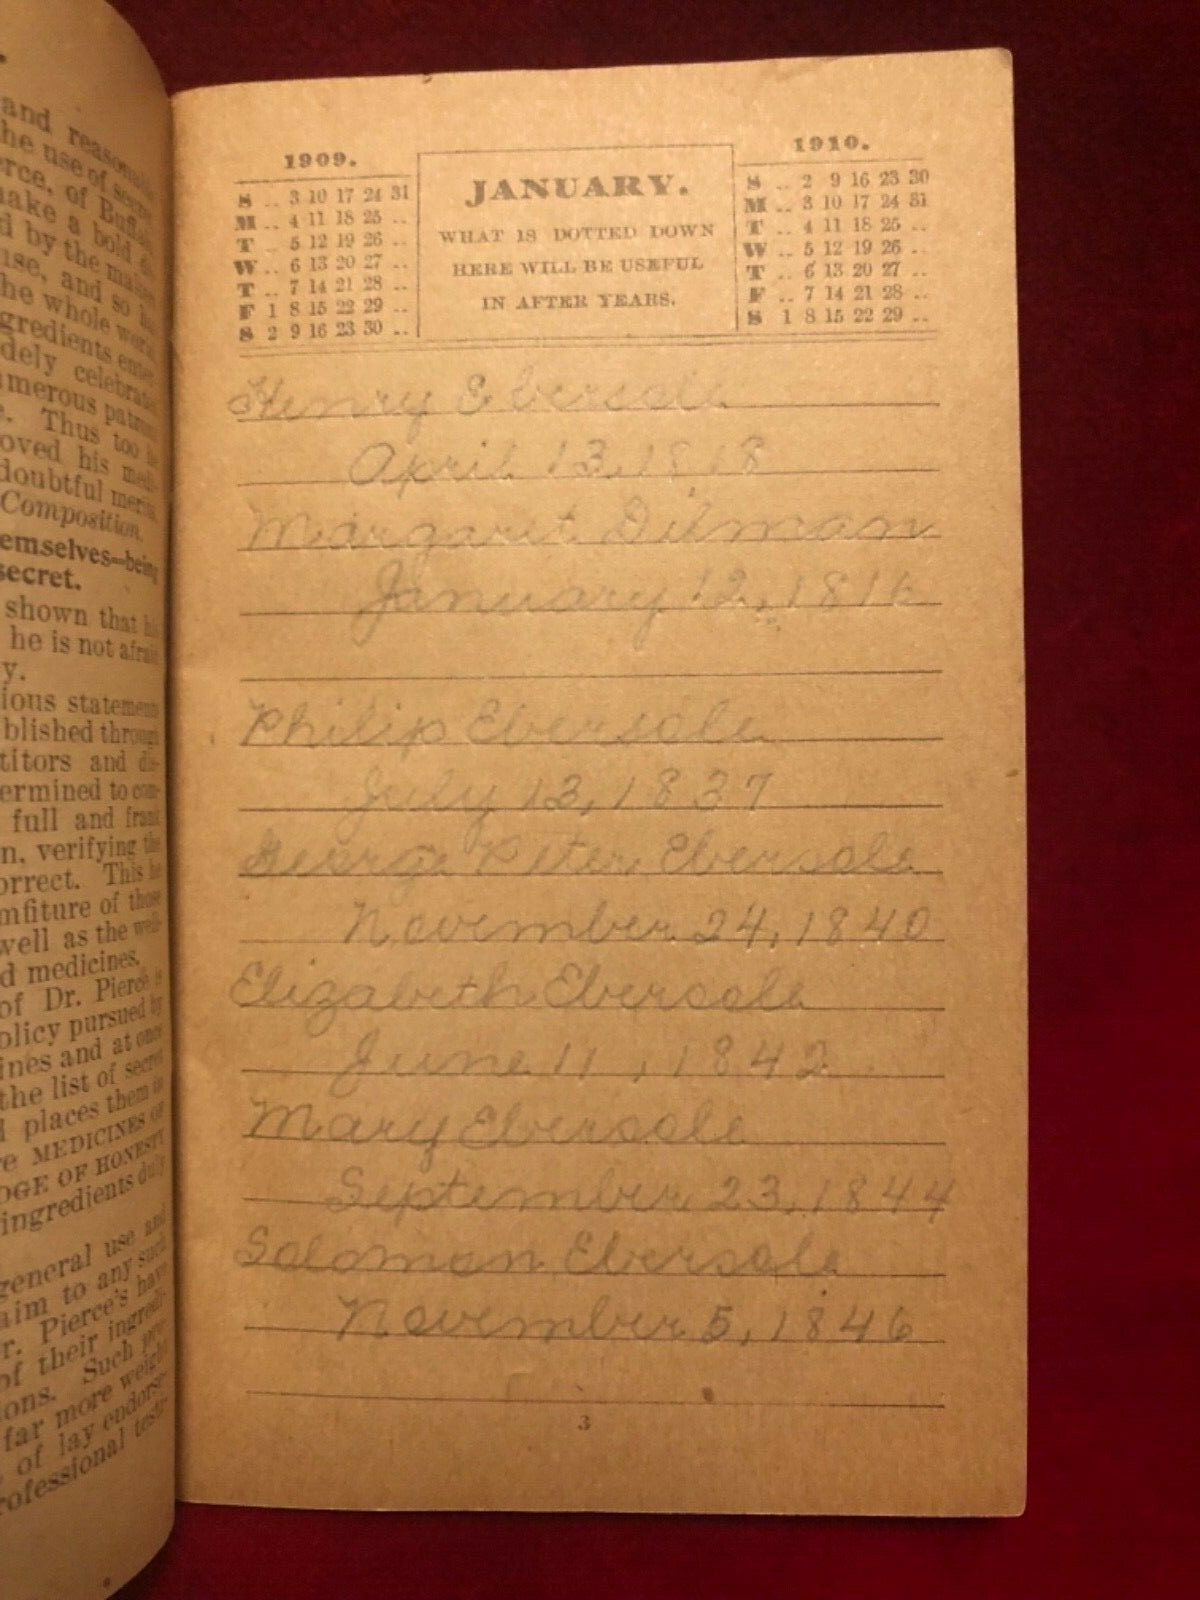 and reason
the use of
erce, of Buff
make a bold
d by the
use, and so
the whole wor
gredients
dely celebrate
umerous patro
e. Thus too
oved his medi-
doubtful merits
Composition.
emselves—being
secret.
shown that
he is not afraid
y.
ious statements
blished through
titors and
ermined to com-
full and frank
n, verifying the
orrect. This
mfiture of those
well as the well-
d medicines.
of Dr. Pierce's
olicy pursued by
ines and at once
the list of secret
d places them in
re MEDICINES OF
DGE OF HONESTY
ingredients duly
general use and
aim to any such
r. Pierce's have
of their ingredi-
ions. Such pro
far more weight
of lay endorse-
rofessional testi-
1909.
S .. 3 10 17 24 31
M .. 4 11 18 25 ..
T .. 5 12 19 26 ..
W .. 6 13 20 27 ..
T .. 7 14 21 28 ..
F 1 8 15 22 29 ..
S 2 9 16 23 30 ..
JANUARY.
WHAT IS DOTTED DOWN
HERE WILL BE USEFUL
IN AFTER YEARS.
1910.
S .. 2 9 16 23 30
M .. 3 10 17 24 31
T .. 4 11 18 25 ..
W .. 5 12 19 26 ..
T .. 6 13 20 27 ..
F .. 7 14 21 28 ..
S 1 8 15 22 29 ..
Henry Ebersole
April 13, 1818
Margaret Dilman
January 12, 1816
Philip Ebersole
July 13, 1837
George Peter Ebersole
November 24, 1840
Elizabeth Ebersole
June 11, 1842
Mary Ebersole
September 23, 1844
Solomon Ebersole
November 5, 1846
3